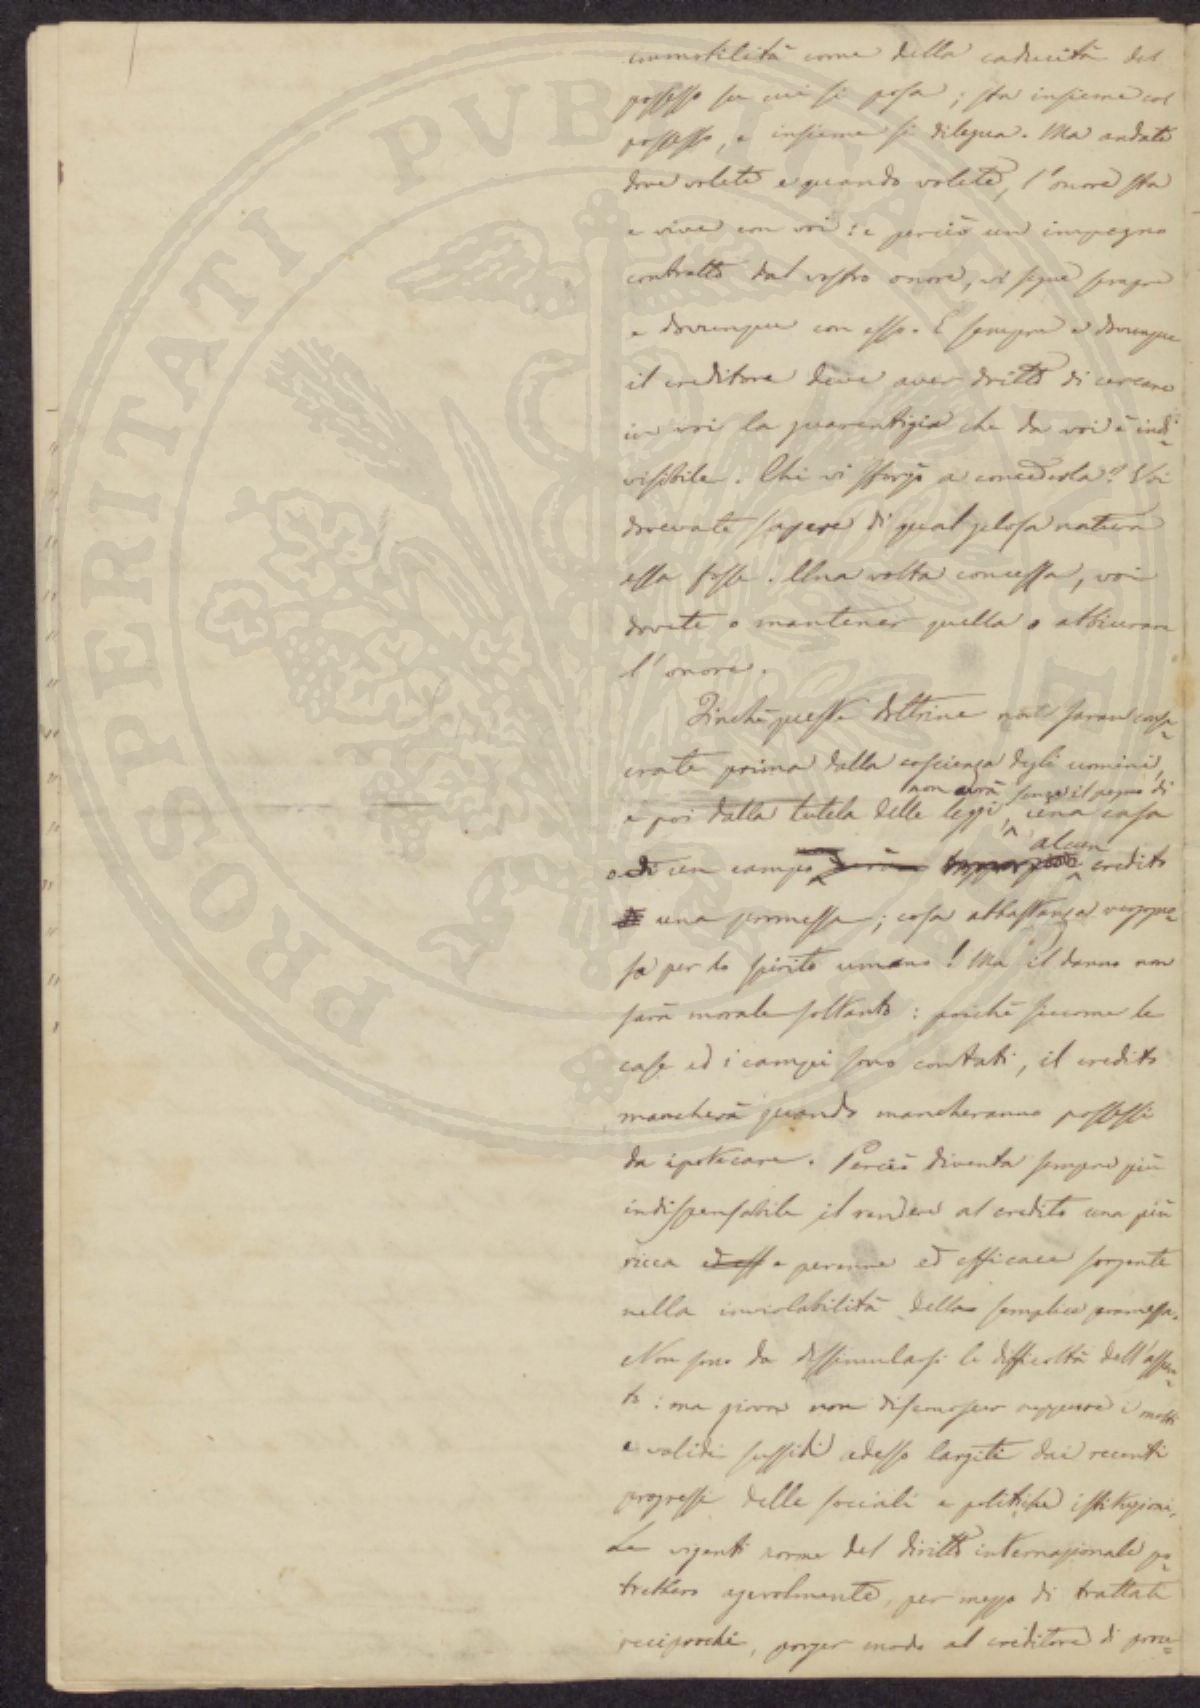 immobilità come della caducità del
possesso su cui si posa; sta insieme col
possesso, e insieme si dilegua. Ma andate
dove volete e quando volete, l'onore sta
e vive con voi: e perciò un impegno
contratto dal vostro onore, vi segue sempre
e dovunque con esso. E sempre e dovunque
il creditore deve aver dritto di cercare
in voi la guarentigia che da voi è indi-
visibile. Chi vi sforzò a concederla? Voi
dovevate sapere di qual gelosa natura
essa fosse. Una volta concessa, voi
dovete o mantener quella o abbiurare
l'onore.
Finchè queste dottrine non saran consa-
crate prima dalla coscienza degli uomini,
non avrà senza il pegno di
e poi dalla tutela delle leggi, una casa
alcun
o di un campo credito
una promessa; cosa abbastanza vergogno-
sa per lo spirito umano! Ma il danno non
sarà morale soltanto: poichè siccome le
case ed i campi sono contati, il credito
mancherà quando mancheranno possessi
da ipotecare. Perciò diventa sempre più
indispensabile il rendere al credito una più
ricca ed eff e perenne ed efficace sorgente
nella inviolabilità della semplice promessa.
Non sono da dissimularsi le difficoltà dell'assun-
to: ma giova non disconoscere neppure i molti
e validi sussidi adesso largiti dai recenti
progressi delle sociali e politiche istituzioni.
Le vigenti norme del diritto internazionale po-
trebbero agevolmente, per mezzo di trattati
reciprochi, porger modo al creditore di proce-
PROSPERITATI PVBLICAE